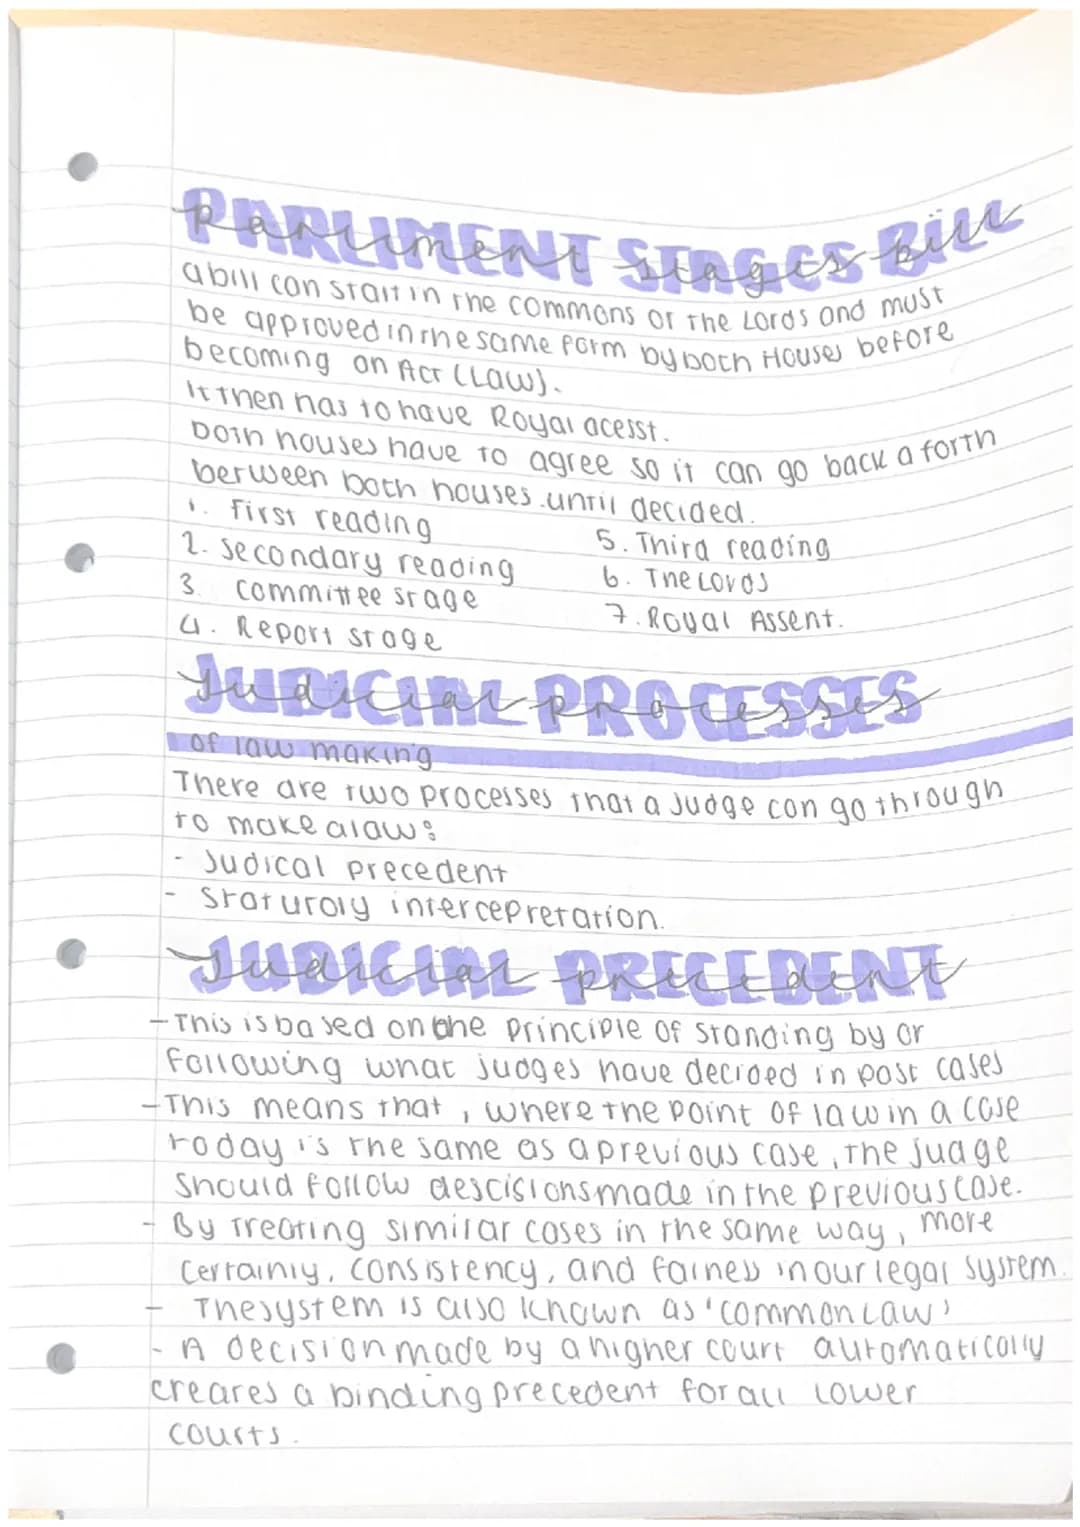 PARLIMENT STAGES BILL
a bill can start in the commons or the Lords and must
be approved in the same form by both Houses before
becoming an Act (Law).
It then has to have Royal acesst.
Both houses have to agree so it can go back a forth
between both houses until decided.
1. First reading
2. Secondary reading
3. Committee stage
4. Report stage
5. Third reading
6. The Lords
7. Royal Assent.
JUDICIAL PROCESSES
of law making
There are two processes that a Judge can go through
to make a law:
- Judical precedent
- Staturory intercepretation.
JUDICIAL PRECEDENT
- This is based on the principle of standing by or
following what judges have decided in past cases
- This means that, where the point of law in a case
today is the same as a previous case, the judge
should follow descisions made in the previous case.
- By treating similar cases in the same way, more
certainly, consistency, and fairness in our legal system.
- The system is also known as 'common Law'
- A decision made by a higher court automatically
creates a binding precedent for all lower
courts.